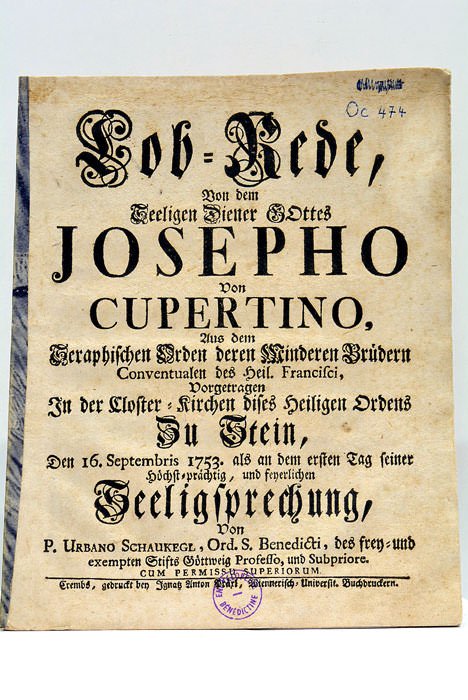 Oc 474
Lob-Rede,
Von dem
Seeligen Diener GOttes
JOSEPHO
Von
CUPERTINO,
Aus dem
Seraphischen Orden deren Minderen Brüdern
Conventualen des Heil. Francisci,
Vorgetragen
In der Closter-Kirchen dises Heiligen Ordens
Zu Stein,
Den 16. Septembris 1753. als an dem ersten Tag seiner
Höchst-prächtig, und feyerlichen
Seeligsprechung,
Von
P. URBANO SCHAUKEGL, Ord. S. Benedicti, des frey- und
exempten Stifts Göttweig Professo, und Subpriore.
CUM PERMISSU SUPERIORUM.
Crembs, gedruckt bey Ignatz Anton Präxl, Wiennerisch-Universit. Buchdruckern.
BENEDICTINE